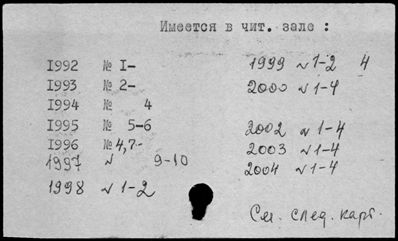 Имеется в чит. зале :
1992 № 1-
1993 № 2-
1994 № 4
1995 № 5-6
1996 № 4,7-
1997 № 9-10
1998 № 1-2
1999 № 1-2 4
2000 № 1-4
2002 № 1-4
2003 № 1-4
2004 № 1-4
См. след. карт.